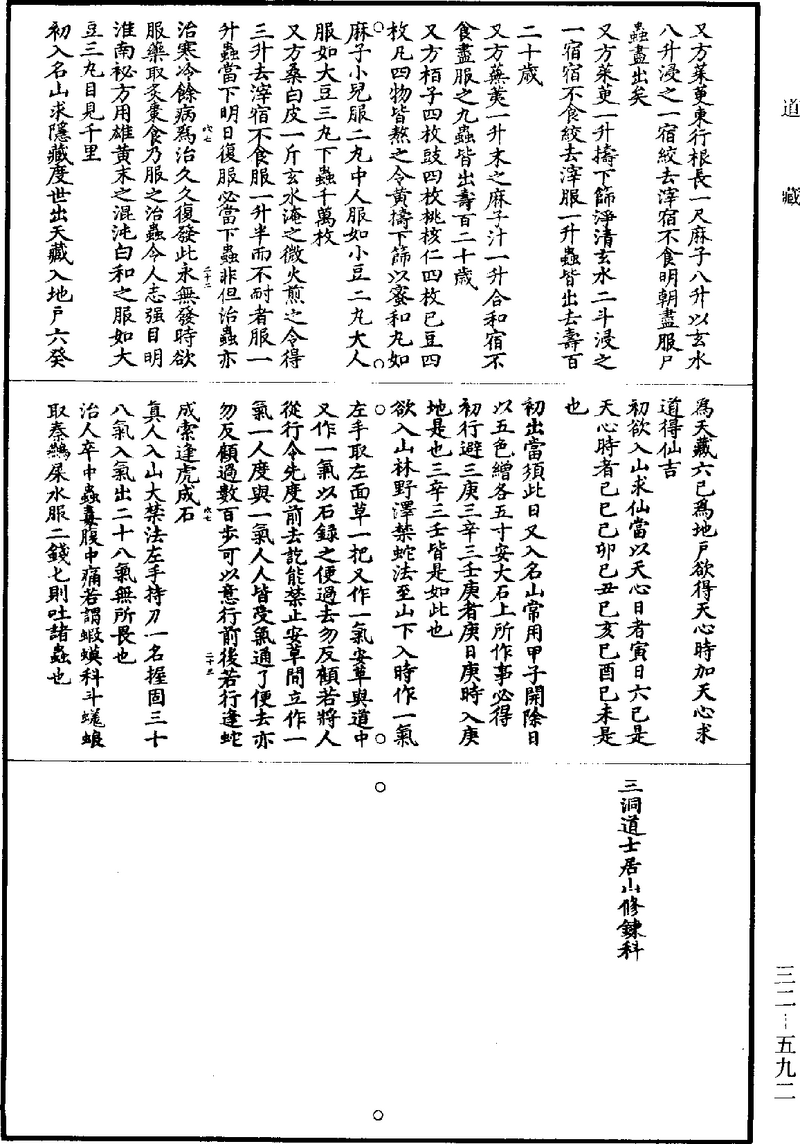 道藏
又方茱萸東行根長一尺麻子八升以玄水
八升浸之一宿絞去滓宿不食明朝盡服尸
蟲盡出矣
又方茱萸一升擣下篩淨清玄水二斗浸之
一宿宿不食絞去滓服一升蟲皆出去壽百
二十歲
又方蕪荑一升末之麻子汁一升合和宿不
食盡服之九蟲皆出壽百二十歲
又方栢子四枚豉四枚桃核仁四枚巴豆四
枚凡四物皆熬之令黃擣下篩以蜜和丸如
麻子小兒服二丸中人服如小豆二丸大人
服如大豆三丸下蟲千萬枚
又方桑白皮一斤玄水淹之微火煎之令得
三升去滓宿不食服一升半而不耐者服一
升蟲當下明日復服必當下蟲非但治蟲亦
治寒冷餘病為治久久復發此永無發時欲
服藥取炙棗食乃服之治蟲令人志强目明
淮南祕方用雄黃末之混沌白和之服如大
豆三丸目見千里
初入名山求隱藏度世出天藏入地戶六癸
為天藏六巳為地戶欲得天心時加天心求
道得仙吉
初欲入山求仙當以天心日者寅日六巳是
天心時者己巳己卯己丑己亥己酉己未是
也
初出當須此日又入名山常用甲子開除日
以五色繒各五寸安大石上所作事必得
初行避三庚三辛三壬庚者庚日庚時入庚
地是也三辛三壬皆是如此也
欲入山林野澤禁蛇法至山下入時作一氣
左手取左面草一把又作一氣安草與道中
又作一氣以石錄之便過去勿反顧若將人
從行令先度前去訖能禁止安草間立作一
氣一人度與一氣人人皆受氣通了便去亦
勿反顧過數百步可以意行前後若行逢蛇
成索逢虎成石
真人入山大禁法左手持刀一名握固三十
八氣入氣出二十八氣無所畏也
治人卒中蟲毒腹中痛若謂蝦蟆科斗蟯蜋
取秦鷦屎水服二錢七則吐諸蟲也
三洞道士居山修鍊科
三二—五九二